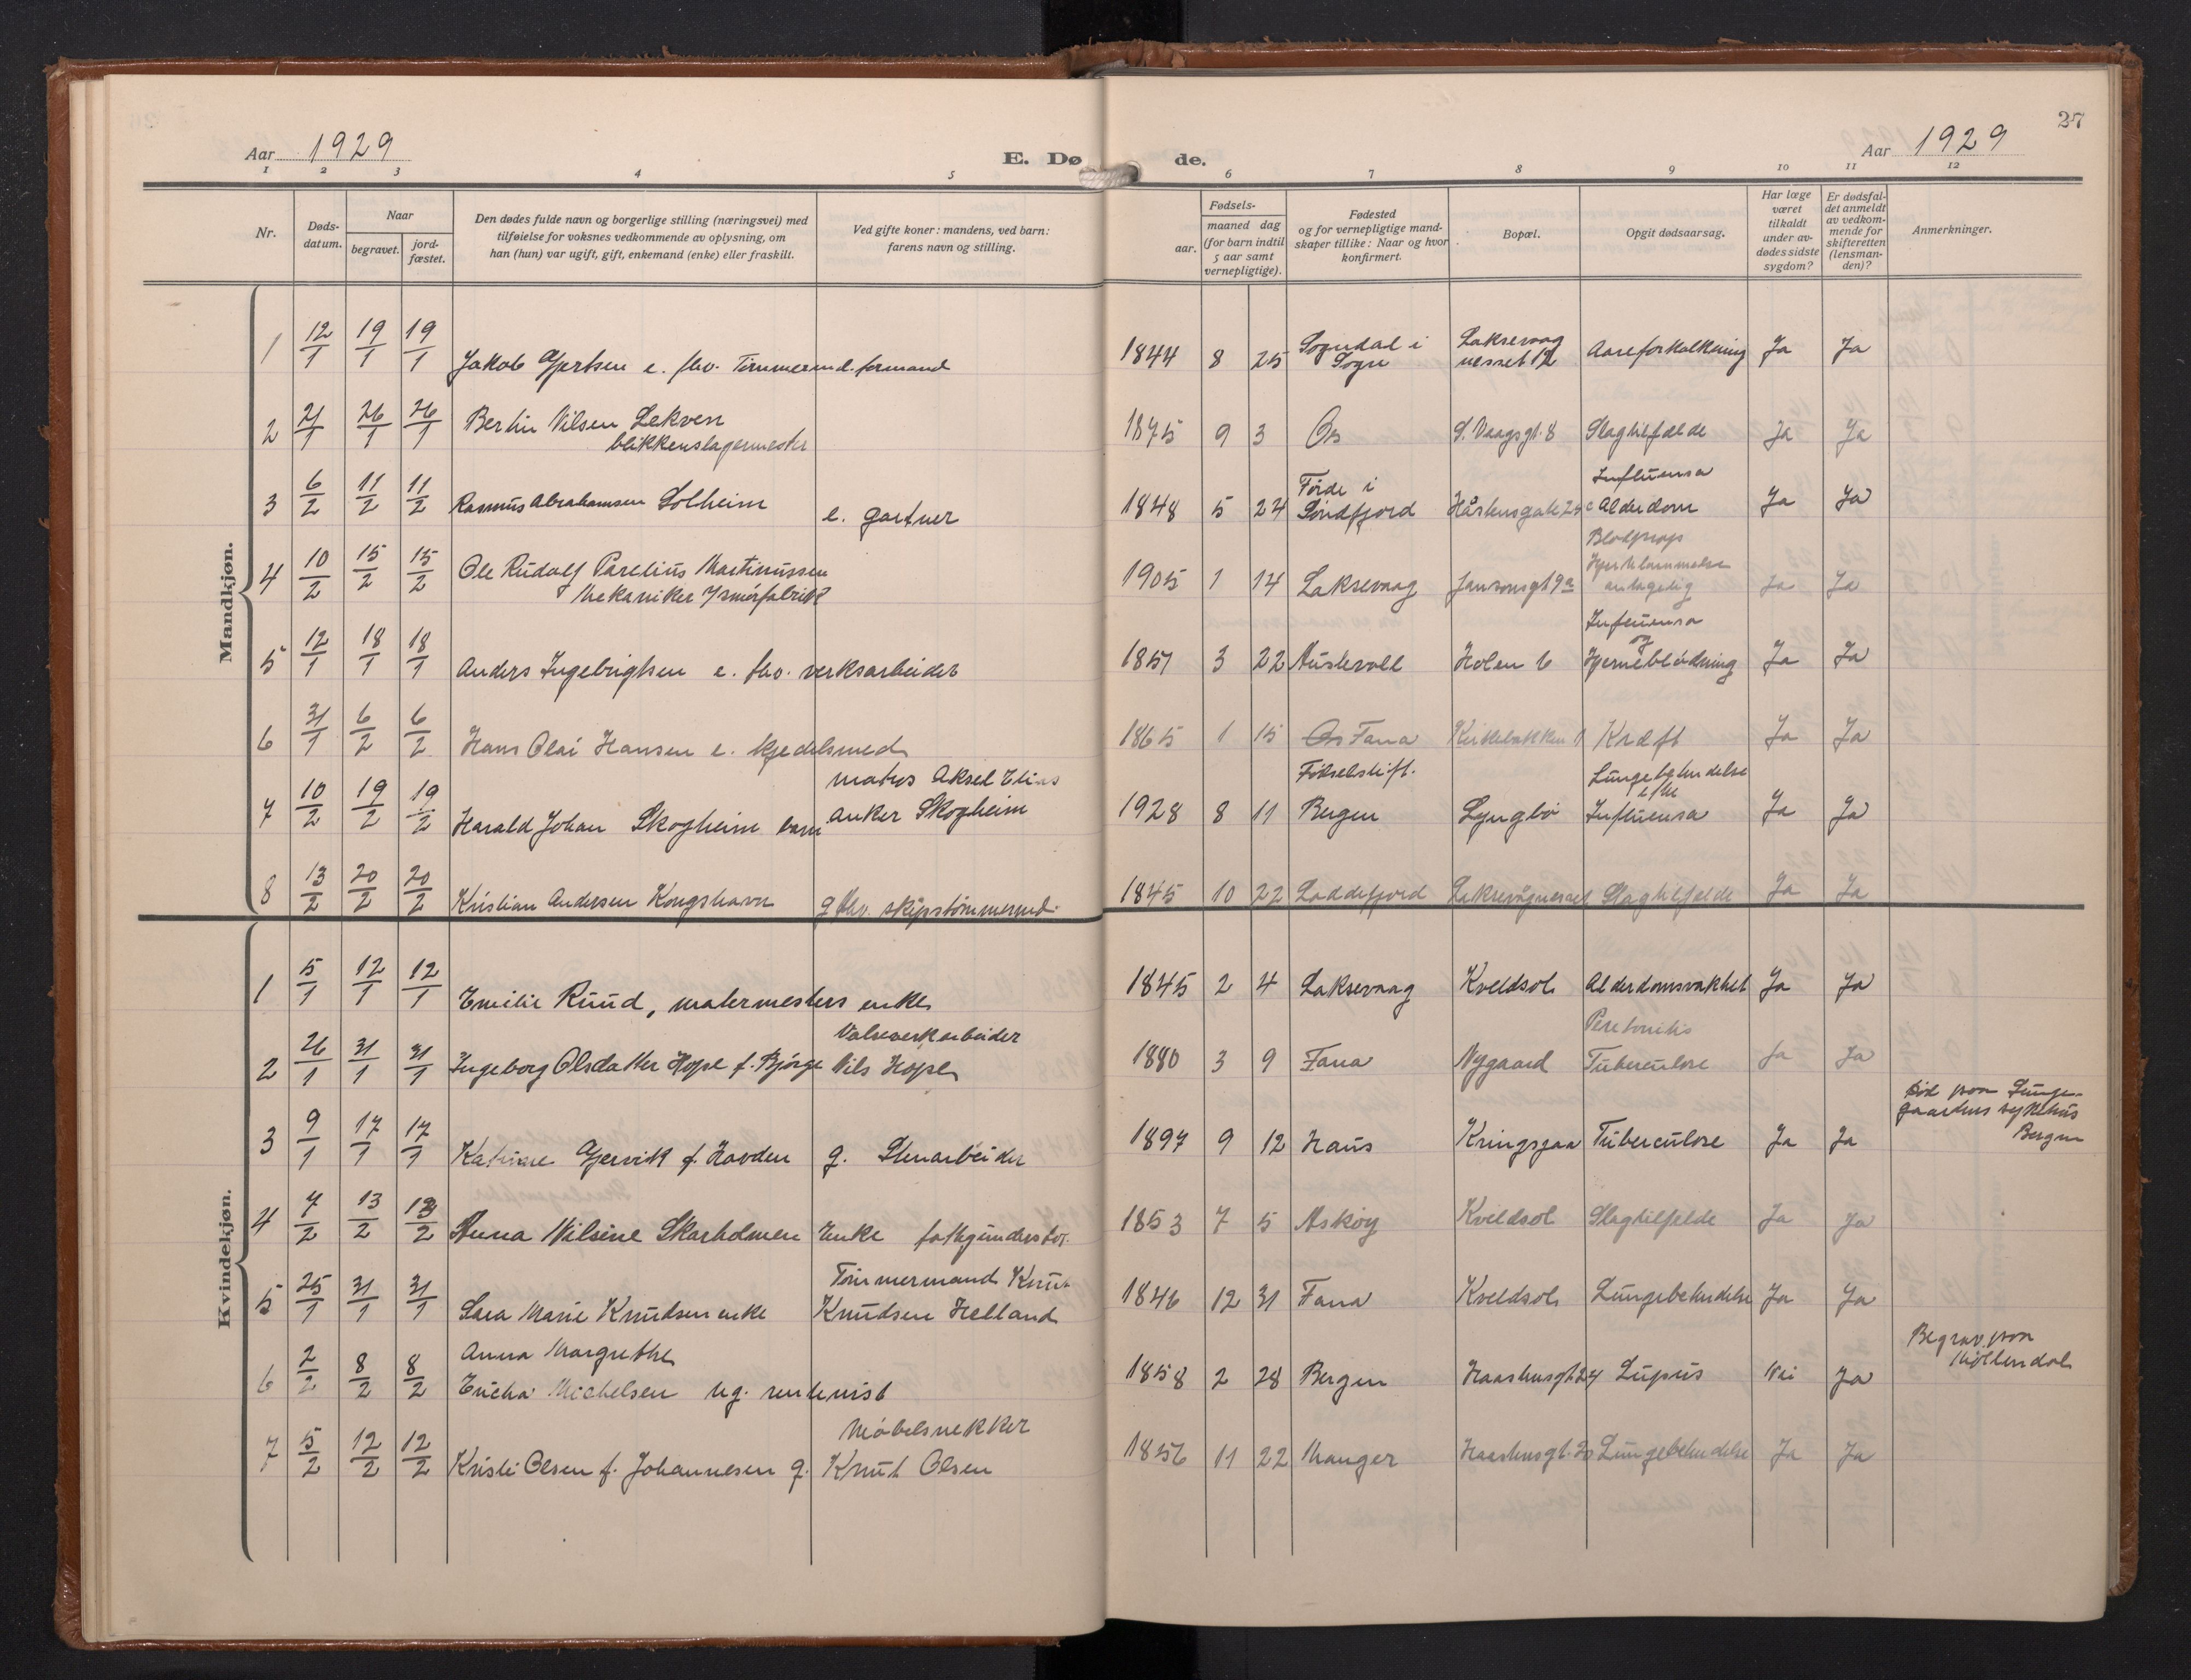 27
Aar 1929
E. Døde.
Aar 1929
1 2 3 4 5 6 7 8 9 10 11 12
Nr.
Døds-datum.
Naar
begravet.
jord-fæstet.
Den dødes fulde navn og borgerlige stilling (næringsvei) med
tilføielse for voksnes vedkommende av oplysning, om
han (hun) var ugift, gift, enkemand (enke) eller fraskilt.
Ved gifte koner: mandens, ved barn:
farens navn og stilling.
Fødsels-
aar.
maaned dag
(for barn indtil
5 aar samt
vernepligtige).
Fødested
og for vernepligtige mand-
skaper tillike: Naar og hvor
konfirmert.
Bopæl.
Opgit dødsaarsag.
Har læge
været
tilkaldt
under av-
dødes sidste
sygdom?
Er dødsfal-
det anmeldt
av vedkom-
mende for
skifteretten
(lensman-
den)?
Anmerkninger.
Mandkjøn.
1 12/1 19/1 19/1 Jakob Gjertsen e. fhv. Timmermd. formand 1844 8 25 Sogndal i Sogn Laksevaag nesset 12 Aareforkalkning Ja Ja
2 21/1 26/1 26/1 Bertin Nilsen Lekven blikkenslagermester 1875 9 3 Os S. Vaagsgt. 8 Slagtilfælde Ja Ja
3 6/2 11/2 11/2 Rasmus Abrahamsen Solheim e. gartner 1848 5 24 Førde i Søndfjord Håstensgate 24c Influensa Alderdom Ja Ja
4 10/2 15/2 15/2 Ole Rudolf Parelius Martinussen Mekaniker 1905 1 14 Laksevaag Jansonsgt 9a Blodprop Ja Ja
5 12/1 18/1 18/1 Anders Ingebrigtsen e. fhv. verksarbeider 1857 3 22 Austevoll Holen 6 Influensa og Hjerneblødning Ja Ja
6 31/1 6/2 6/2 Hans Olai Hansen e. kjedelsmed 1865 1 15 Os Fana Kirkebakken 11 Kræft Ja Ja
7 10/2 19/2 19/2 Harald Johan Skogheim barn matros Aksel Elias Anker Skogheim 1928 8 11 Fødselstift. Bergen Lyngbø Lungebetendelse efter Influensa Ja Ja
8 13/2 20/2 20/2 Kristian Andersen Kongshavn g fhv. skipstømmermd. 1845 10 22 Loddefjord Laksevågnesset Slagtilfelde Ja Ja
Kvindekjøn.
1 5/1 12/1 12/1 Emilie Ruud, malermesters enke 1845 2 4 Laksevaag Kveldsol Alderdomsvakhet Ja Ja
2 26/1 31/1 31/1 Ingeborg Olsdatter Hope f. Bjørge Valseverkarbeider Nils Hope 1880 3 9 Fana Nygaard Peretonitis Tuberculose Ja Ja
3 9/1 17/1 17/1 Katrine Gjervik f. Havden g. Stenarbeider 1897 9 12 Haus Kringsjaa Tuberculose Ja Ja Død paa Lunge-gaardens sykehus Bergen
4 7/2 13/2 13/2 Anna Nilsine Skarholmen Enke fattigunderst. 1853 7 5 Askøy Kveldsol Slagtilfelde Ja Ja
5 25/1 31/1 31/1 Sara Marie Knudsen enke Tømmermand Knut Knudsen Helland 1846 12 31 Fana Kveldsol Lungebetendelse Ja Ja
6 2/2 8/2 8/2 Anna Margrethe Ericha Michelsen ug. rentenist 1858 2 28 Bergen Haastensgt 24 Lupus Nei Ja Begrav. paa Møllendal
7 5/2 12/2 12/2 Kristi Olsen f. Johannesen g. Møbelsnekker Knut Olsen 1856 11 22 Manger Haastensgt. 20 Lungebetendelse Ja Ja